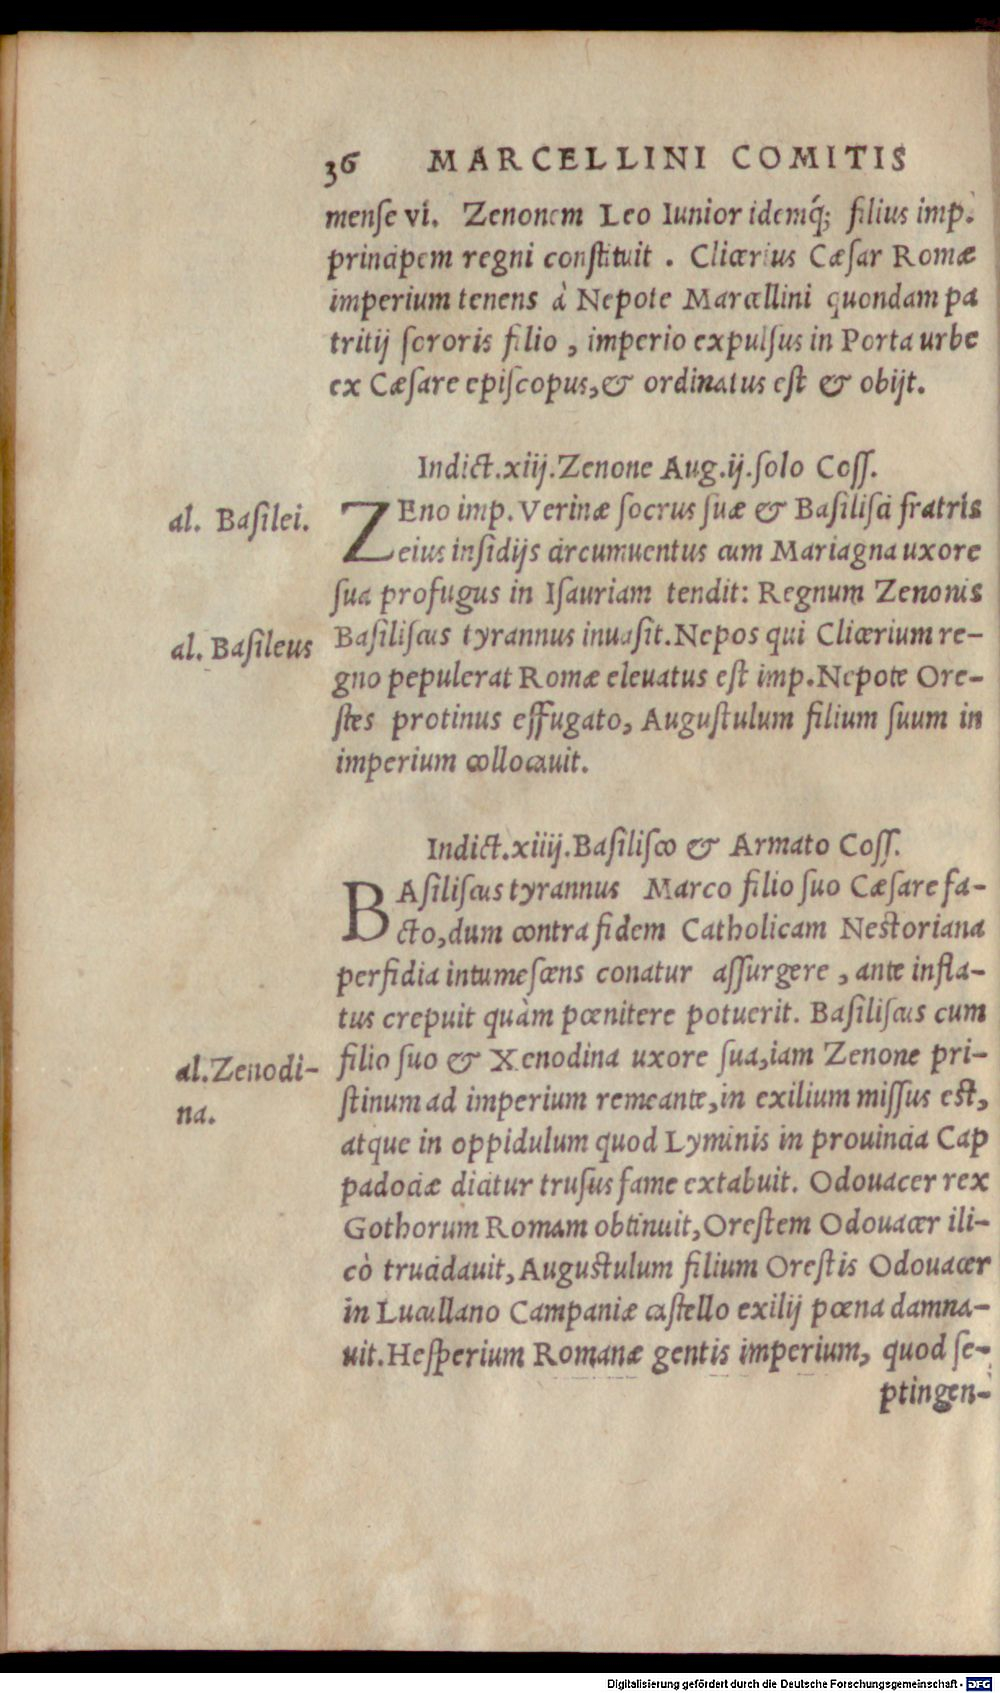 36 MARCELLINI COMITIS
mense vi. Zenonem Leo Iunior idemq́; filius imp.
principem regni constituit . Clicerius Cæsar Romæ
imperium tenens à Nepote Marcellini quondam pa
tritij sororis filio , imperio expulsus in Porta urbe
ex Cæsare episcopus,& ordinatus est & obijt.
Indict.xiij.Zenone Aug.ij.solo Coss.
al. Basilei.
ZEno imp. Verinæ socrus suæ & Basilisci fratris
eius insidijs circumuentus cum Mariagna uxore
sua profugus in Isauriam tendit: Regnum Zenonis
al. Basileus
Basiliscus tyrannus inuasit.Nepos qui Clicerium re-
gno pepulerat Romæ eleuatus est imp.Nepote Ore-
stes protinus effugato, Augustulum filium suum in
imperium collocauit.
Indict.xiiij.Basilisco & Armato Coss.
BAsiliscus tyrannus Marco filio suo Cæsare fa-
cto,dum contra fidem Catholicam Nestoriana
perfidia intumescens conatur assurgere , ante infla-
tus crepuit quàm pœnitere potuerit. Basiliscus cum
al.Zenodi-
na.
filio suo & Xenodina uxore sua,iam Zenone pri-
stinum ad imperium remeante,in exilium missus est,
atque in oppidulum quod Lyminis in prouincia Cap
padociæ dicitur trusus fame extabuit. Odouacer rex
Gothorum Romam obtinuit,Orestem Odouacer ili-
cò trucidauit,Augustulum filium Orestis Odouacer
in Lucullano Campaniæ castello exilij pœna damna-
uit.Hesperium Romanæ gentis imperium, quod se-
ptingen-
Digitalisierung gefördert durch die Deutsche Forschungsgemeinschaft - DFG